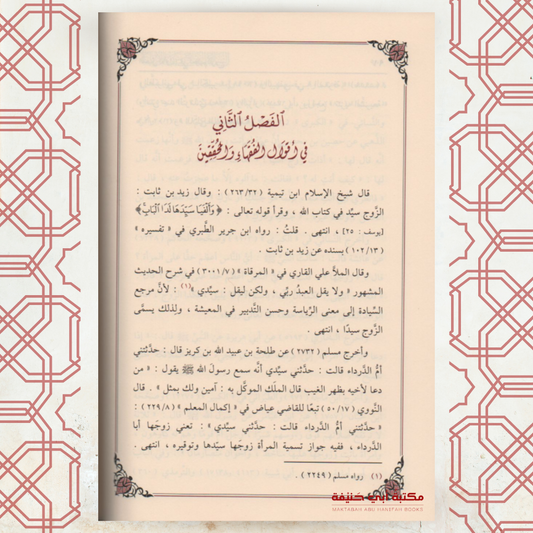 الفَصْلُ الثَّاني
في أقوال الفُقهاءِ والمحققين
قال شيخ الإسلام ابن تيمية (٢٦٣/٣٢) : وقال زيد بن ثابت :
الزَّوج سيِّد في كتاب الله ، وقرأ قوله تعالى : ﴿وَأَلْفَيَا سَيِّدَهَا لَدَا ٱلْبَابِ﴾
[يوسف : ٢٥] ، انتهى . قلتُ : رواه ابن جرير الطَّبري في « تفسيره »
(١٠٢/١٣) بسنده عن زيد بن ثابت .
وقال الملاَّ علي القاري في « المرقاة » (٣٠٠١/٧) في شرح الحديث
المشهور « ولا يقل العبدُ ربِّي ، ولكن ليقل : سيِّدي »(١) : لأنَّ مرجع
السِّيادة إلى معنى الرِّياسة وحسن التَّدبير في المعيشة ، ولذلك يسمَّى
الزَّوج سيدًا ، انتهى .
وأخرج مسلم (٢٧٣٢) عن طلحة بن عبيد الله بن كريز قال : حدَّثتني
أمُّ الدَّرداء قالت : حدَّثني سيِّدي أنَّه سمع رسول الله ﷺ يقول : « من
دعا لأخيه بظهر الغيب قال الملَك الموكَّل به : آمين ولك بمثل » . قال
النَّووي (٥٠/١٧) تبعًا للقاضي عياض في « إكمال المعلم » (٢٢٩/٨) :
« حدَّثتني أمُّ الدَّرداء قالت : حدَّثني سيِّدي » : تعني زوجها أبا
الدَّرداء ، ففيه جواز تسمية المرأة زوجَها سيّدَها وتوقيره ، انتهى .
(١) رواه مسلم (٢٢٤٩) .
مكتبة أبي حنيفة
MAKTABAH ABU HANEFAH BOOKS